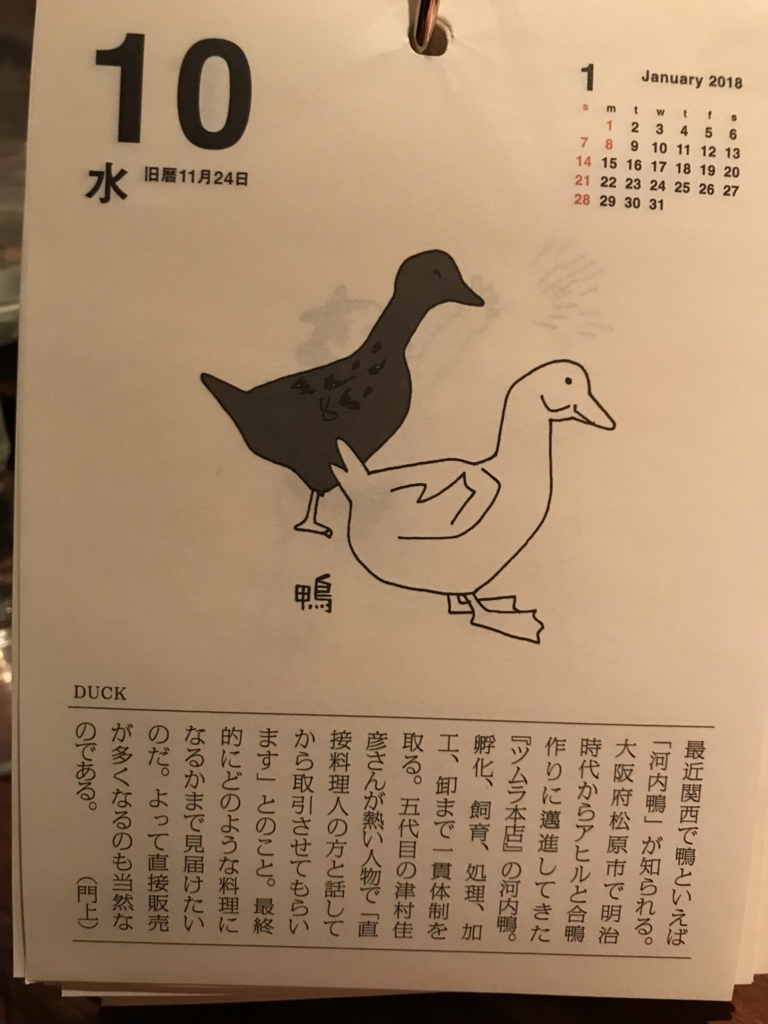 10
水 旧暦11月24日
1 January 2018
s m t w t f s
1 2 3 4 5 6
7 8 9 10 11 12 13
14 15 16 17 18 19 20
21 22 23 24 25 26 27
28 29 30 31
鴨
DUCK
最近関西で鴨といえば
「河内鴨」が知られる。
大阪府松原市で明治
時代からアヒルと合鴨
作りに邁進してきた
『ツムラ本店』の河内鴨。
孵化、飼育、処理、加
工、卸まで一貫体制を
取る。五代目の津村佳
彦さんが熱い人物で「直
接料理人の方と話して
から取引させてもらい
ます」とのこと。最終
的にどのような料理に
なるかまで見届けたい
のだ。よって直接販売
が多くなるのも当然な
のである。 （門上）